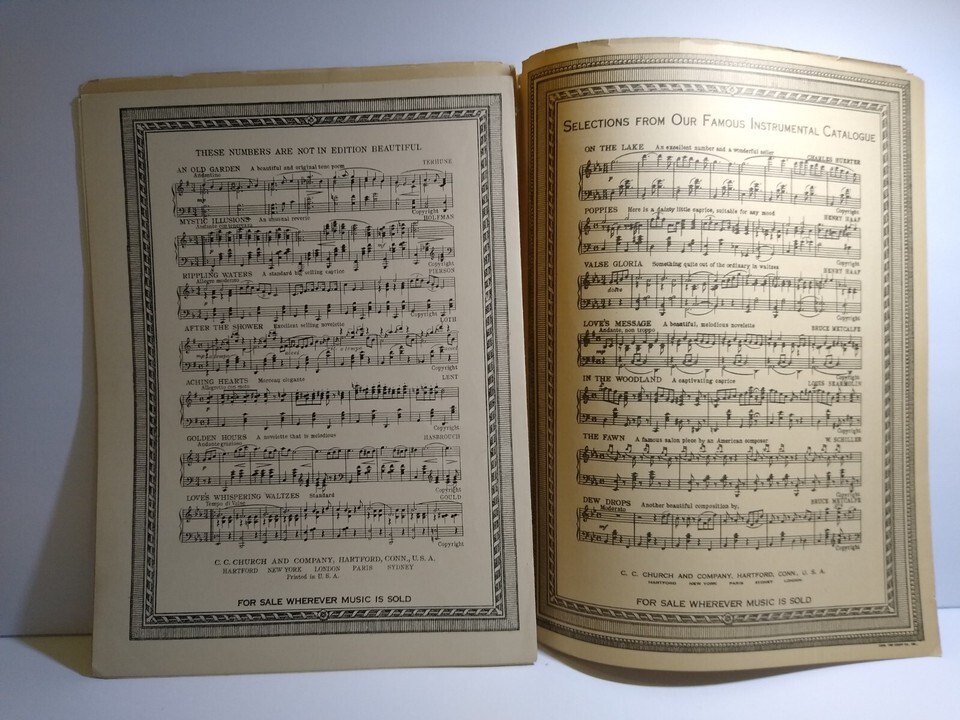 THESE NUMBERS ARE NOT IN EDITION BEAUTIFUL
AN OLD GARDEN A beautiful and original tone poem TERHUNE
Andantino
Copyright
MYSTIC ILLUSIONS An unusual reverie HOLFMAN
Copyright
RIPPLING WATERS A standard big selling caprice PIERSON
Allegro moderato
Copyright
AFTER THE SHOWER Excellent selling novelette LOTH
Copyright
ACHING HEARTS Morceau elegante LENT
Allegretto con moto
Copyright
GOLDEN HOURS A novelette that is melodious HASBROUCH
Andante grazioso
Copyright
LOVE'S WHISPERING WALTZES Standard GOULD
Tempo di Valse
Copyright
C. C. CHURCH AND COMPANY, HARTFORD, CONN., U. S. A.
HARTFORD NEW YORK LONDON PARIS SYDNEY
Printed in U. S. A.
FOR SALE WHEREVER MUSIC IS SOLD
SELECTIONS FROM OUR FAMOUS INSTRUMENTAL CATALOGUE
ON THE LAKE An excellent number and a wonderful seller CHARLES
Copyright
POPPIES Here is a dainty little caprice, suitable for any mood HENRY HAAF
Copyright
VALSE GLORIA Something quite out of the ordinary in waltzes HENRY HAAF
dolce
Copyright
LOVE'S MESSAGE A beautiful, melodious novelette BRUCE METCALFE
Andante, non troppo
Copyright
IN THE WOODLAND A captivating caprice LOUIS
Copyright
THE FAWN A famous salon piece by an American composer W. SCHILLER
Copyright
DEW DROPS Another beautiful composition by, BRUCE METCALFE
Moderato
mf
Copyright
C. C. CHURCH AND COMPANY, HARTFORD, CONN., U. S. A.
HARTFORD NEW YORK PARIS SYDNEY LONDON
FOR SALE WHEREVER MUSIC IS SOLD